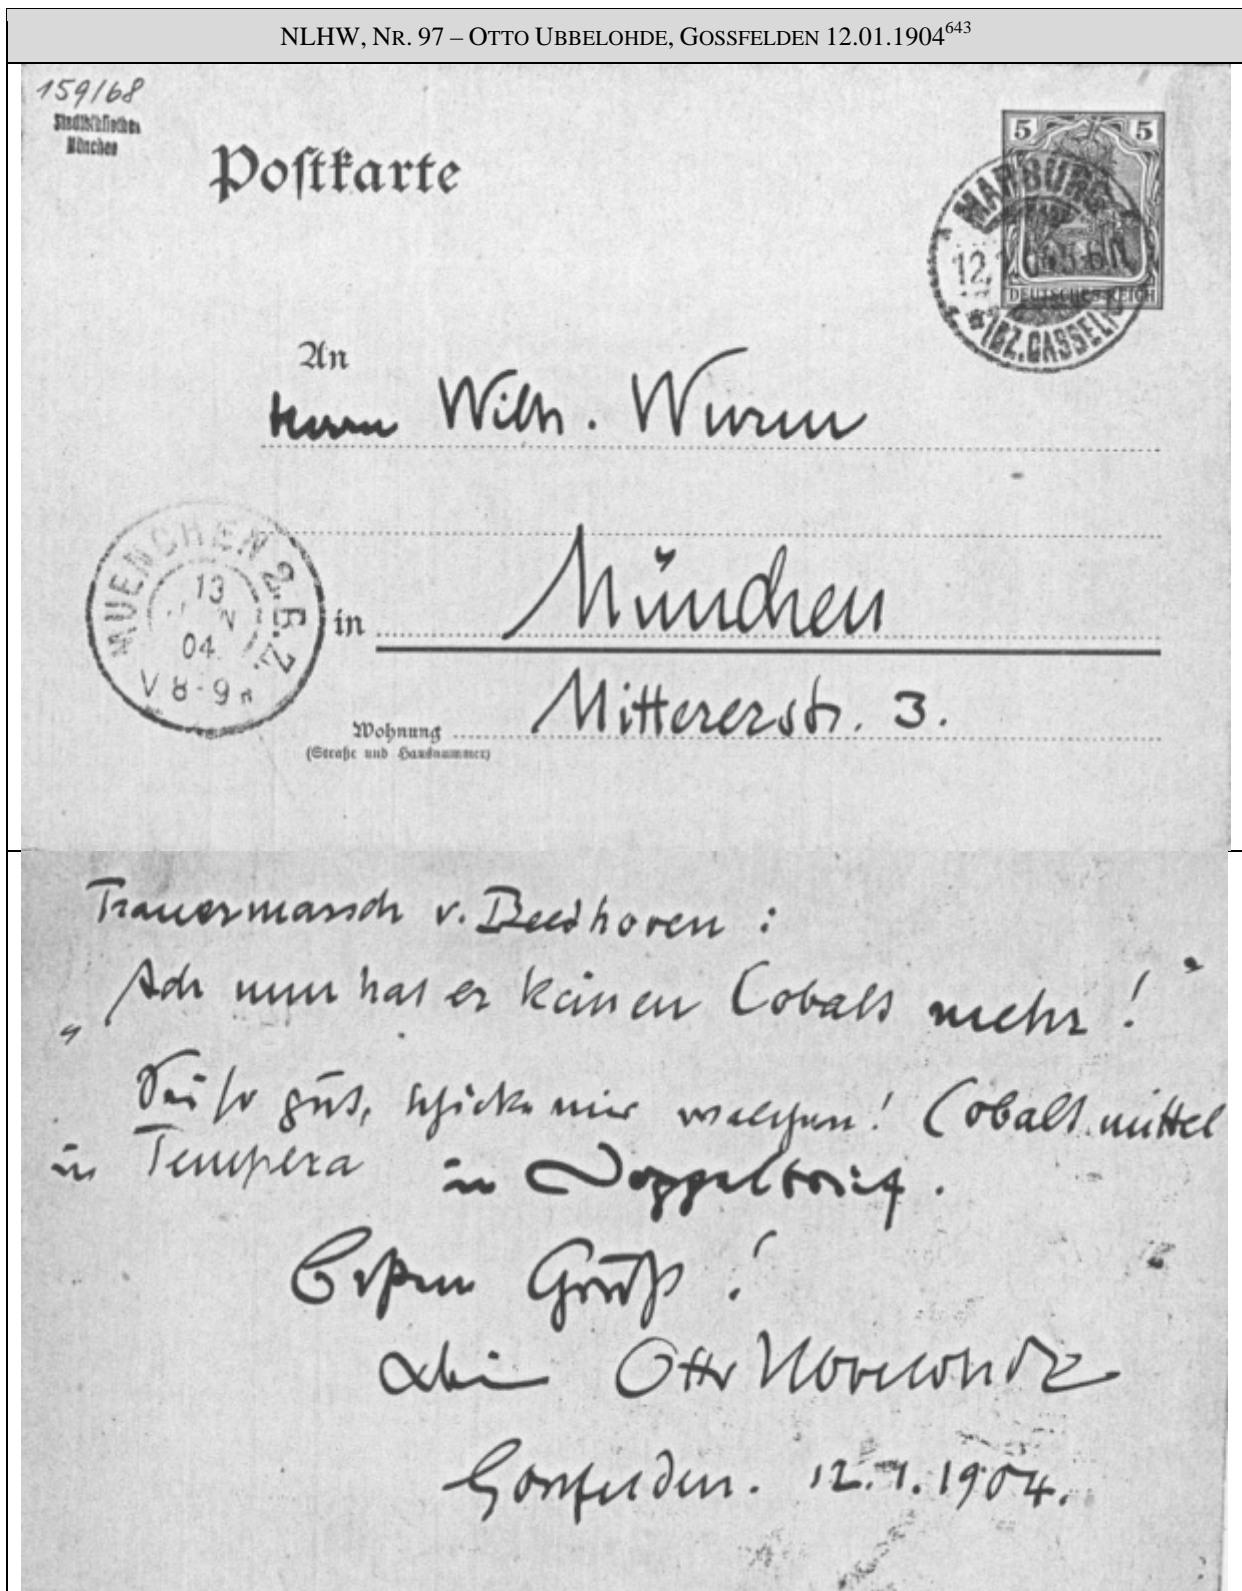 NLHW, NR. 97 – OTTO UBBELOHDE, GOSSFELDEN 12.01.1904⁶⁴³
159/68
Stadtbibliothek
München
Postkarte
5 5
DEUTSCHES REICH
MARBURG
12.1.04 5-6N
*(BZ.CASSEL)
An
Herrn Wilh. Wurm
MUENCHEN 2.B.Z.
13
JAN
04
V 8-9
in München
Wohnung Mittererstr. 3.
(Straße und Hausnummer)
Trauermarsch v. Beethoven :
„Ach nun hat er keinen Cobalt mehr!“
Sei so gut, schicke mir welchen! Cobalt mittel
in Tempera in Doppelbrief.
Besten Gruß!
dein Otto Ubbelohde
Gossfelden. 12.1.1904.